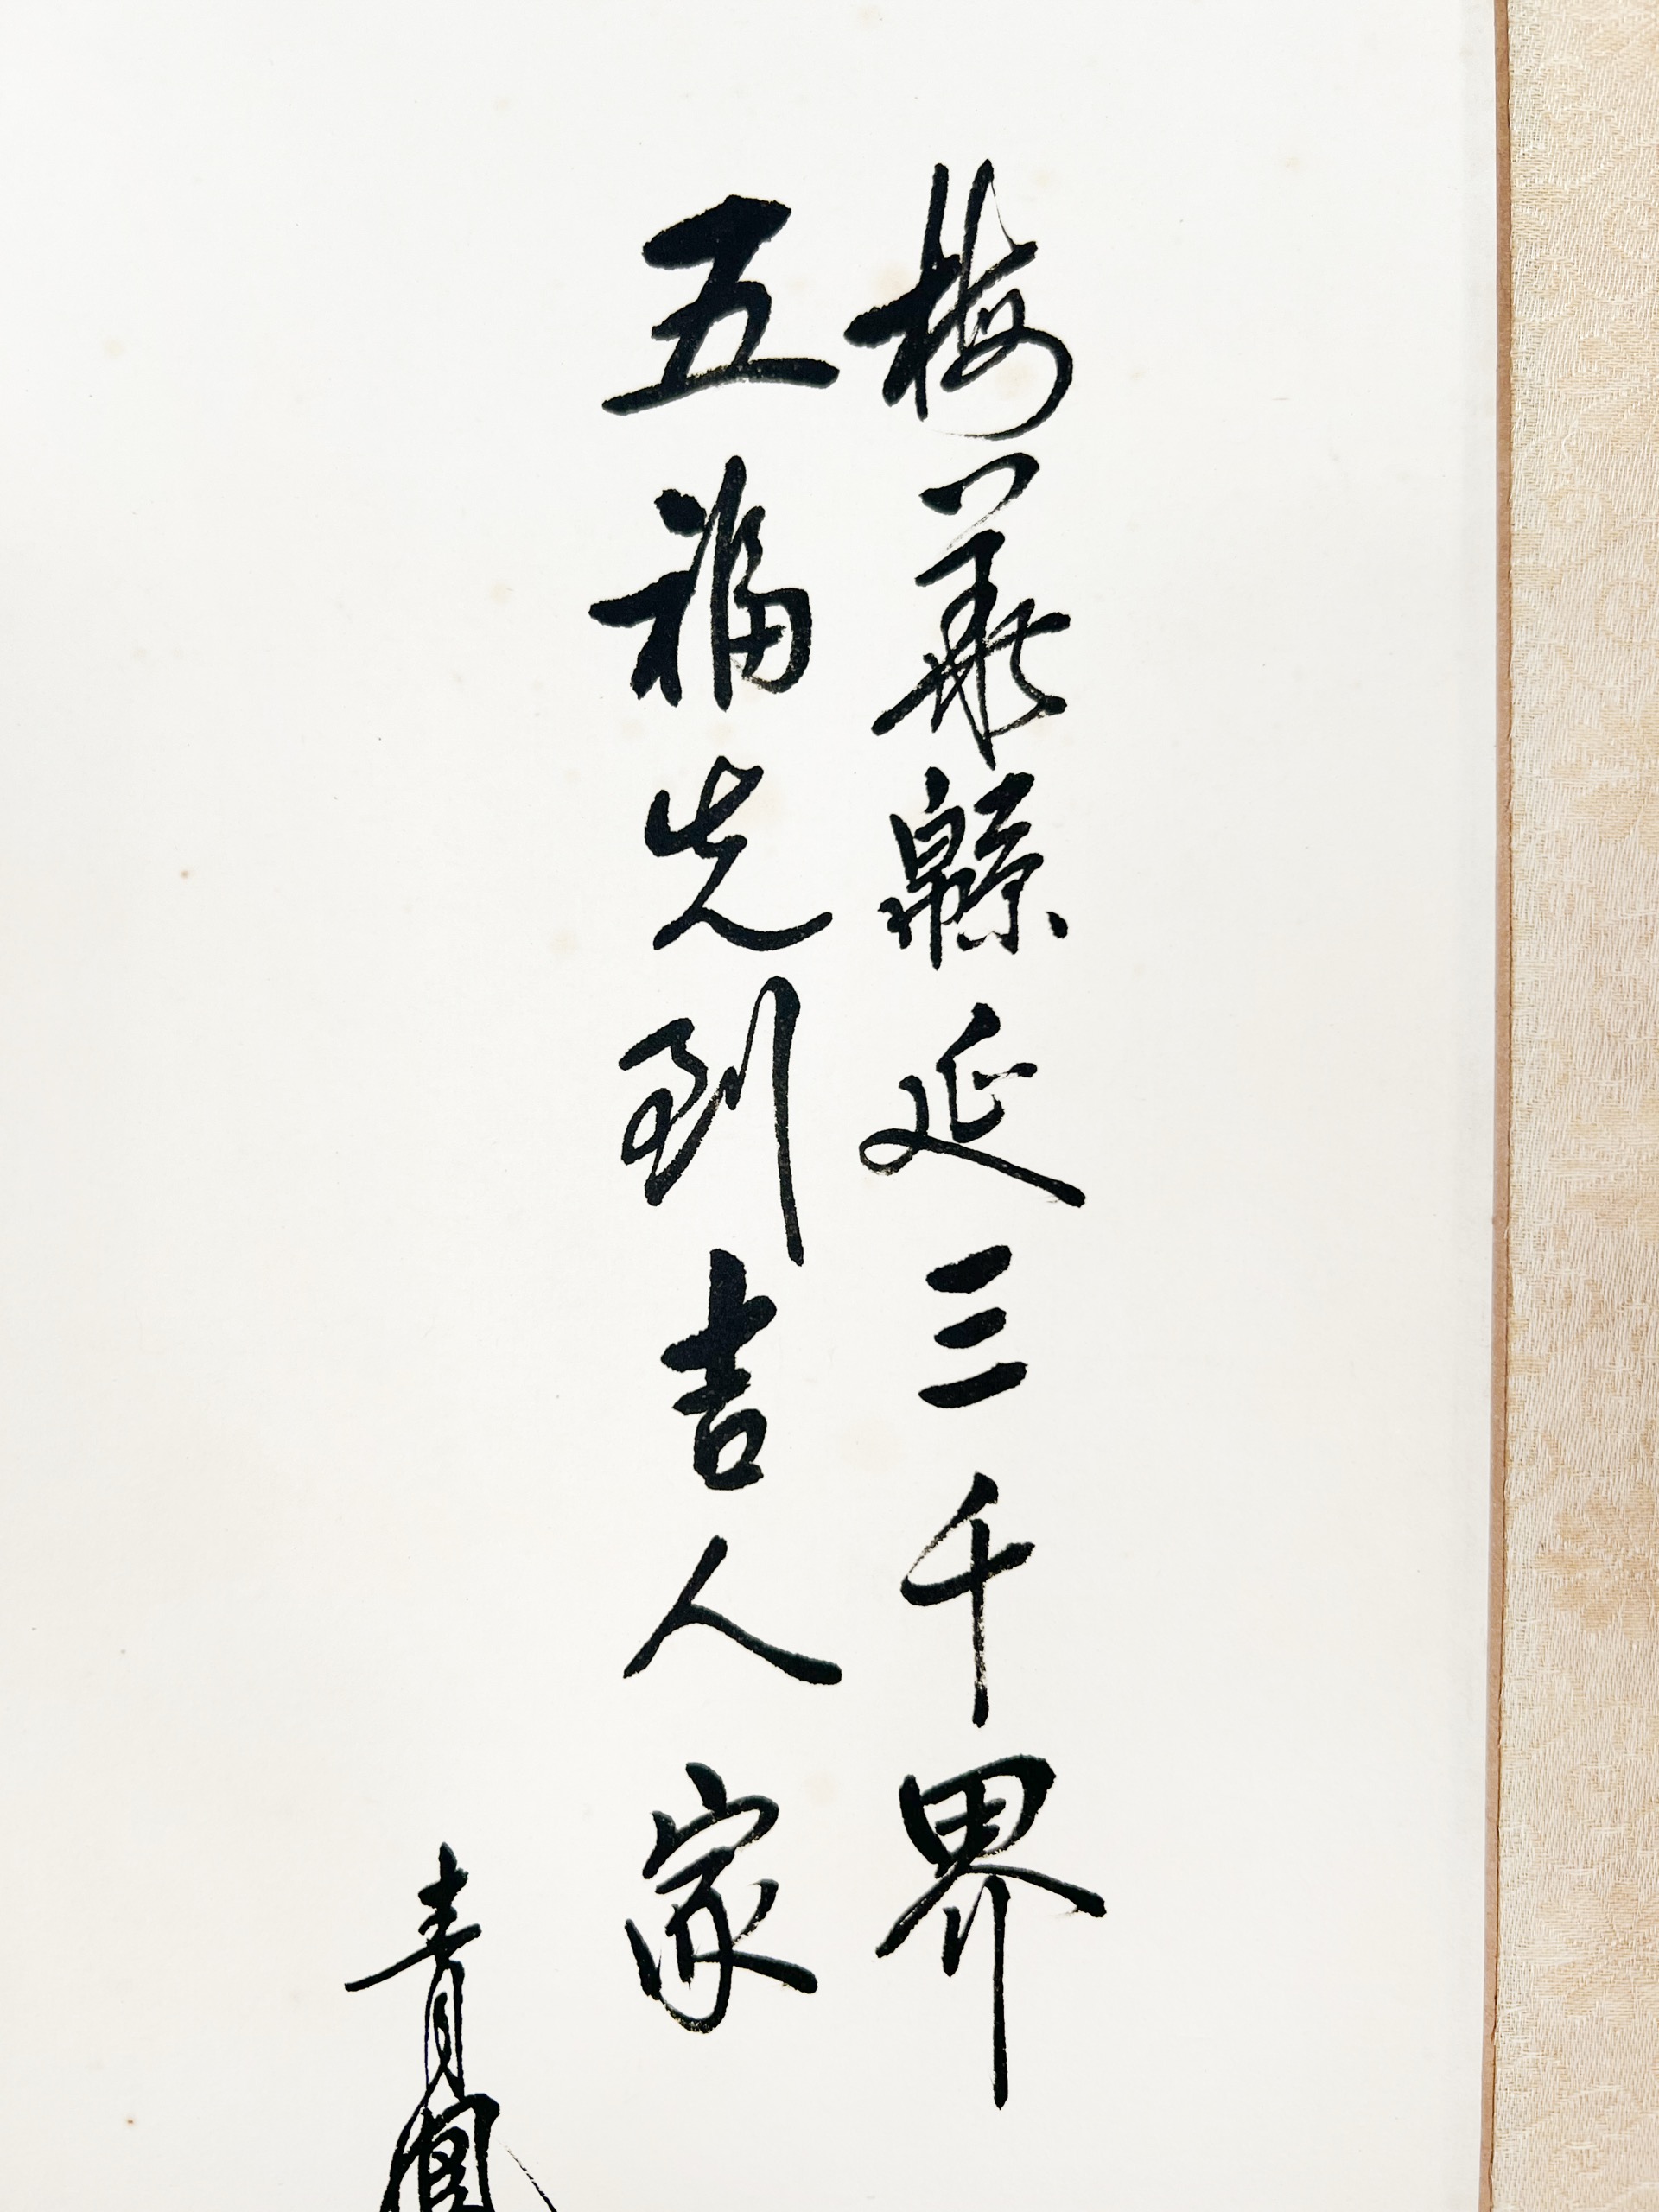 梅華緜延三千界
五福先到吉人家
青